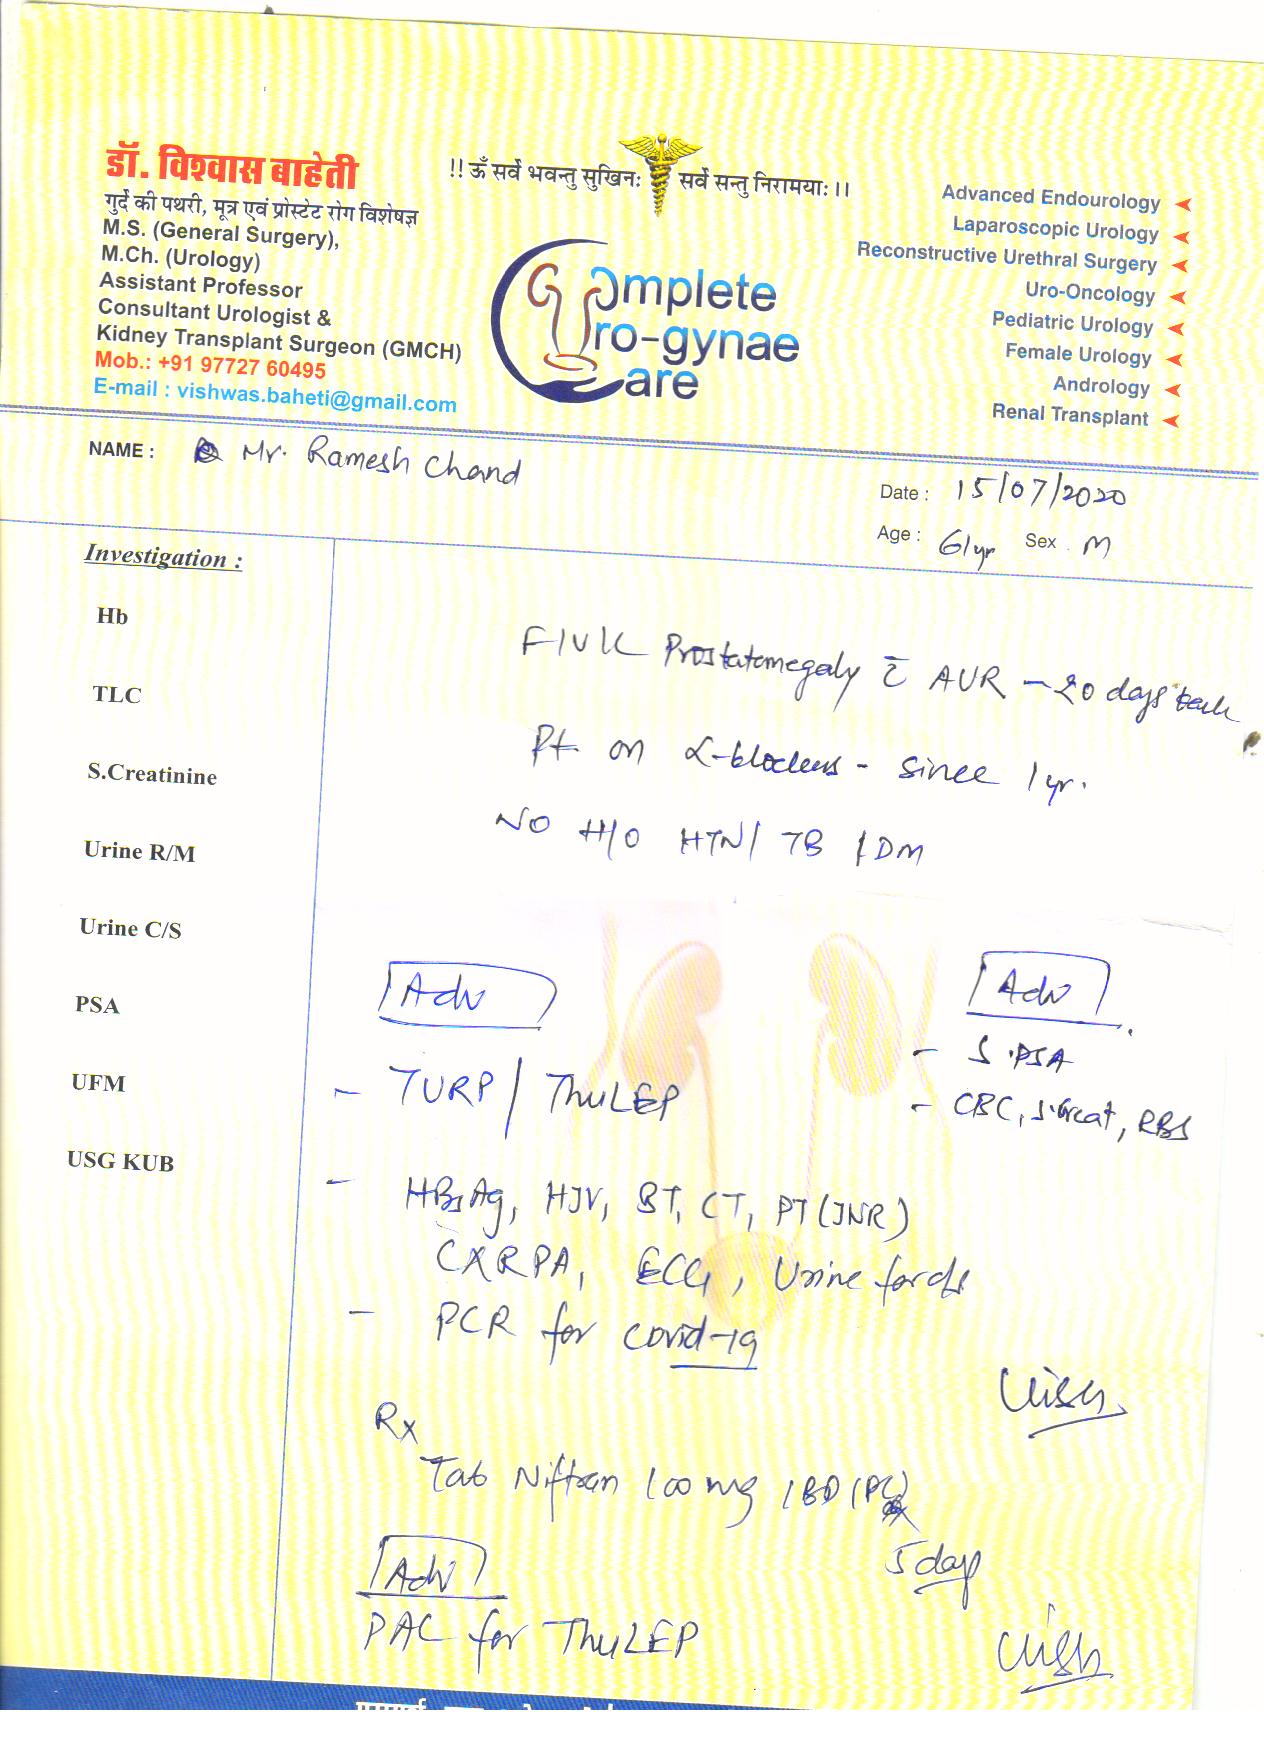 डॉ. विश्वास बाहेती
गुर्दे की पथरी, मूत्र एवं प्रोस्टेट रोग विशेषज्ञ
M.S. (General Surgery),
M.Ch. (Urology)
Assistant Professor
Consultant Urologist &
Kidney Transplant Surgeon (GMCH)
Mob.: +91 97727 60495
E-mail : vishwas.baheti@gmail.com
!! ॐ सर्वे भवन्तु सुखिनः सर्वे सन्तु निरामयाः ।।
Complete
Uro-gynae
Care
Advanced Endourology
Laparoscopic Urology
Reconstructive Urethral Surgery
Uro-Oncology
Pediatric Urology
Female Urology
Andrology
Renal Transplant
NAME : Mr. Ramesh Chand
Date : 15/07/2020
Age : 61yr Sex M
Investigation :
Hb
TLC
S.Creatinine
Urine R/M
Urine C/S
PSA
UFM
USG KUB
Prostatomegaly c̄ AUR - 20 days back
Pt on α-blockers - since 1 yr.
NO H/O HTN/ TB / DM
Adv
- TURP / ThuLEP
- HBsAg, HIV, BT, CT, PT (INR)
CXR PA, ECG, Urine for c/s
- PCR for Covid-19
Adv
- S.PSA
- CBC, S.Creat, RBS
Rx
Tab Niftran 100 mg 1BD
5 day
Adv
PAC for ThuLEP